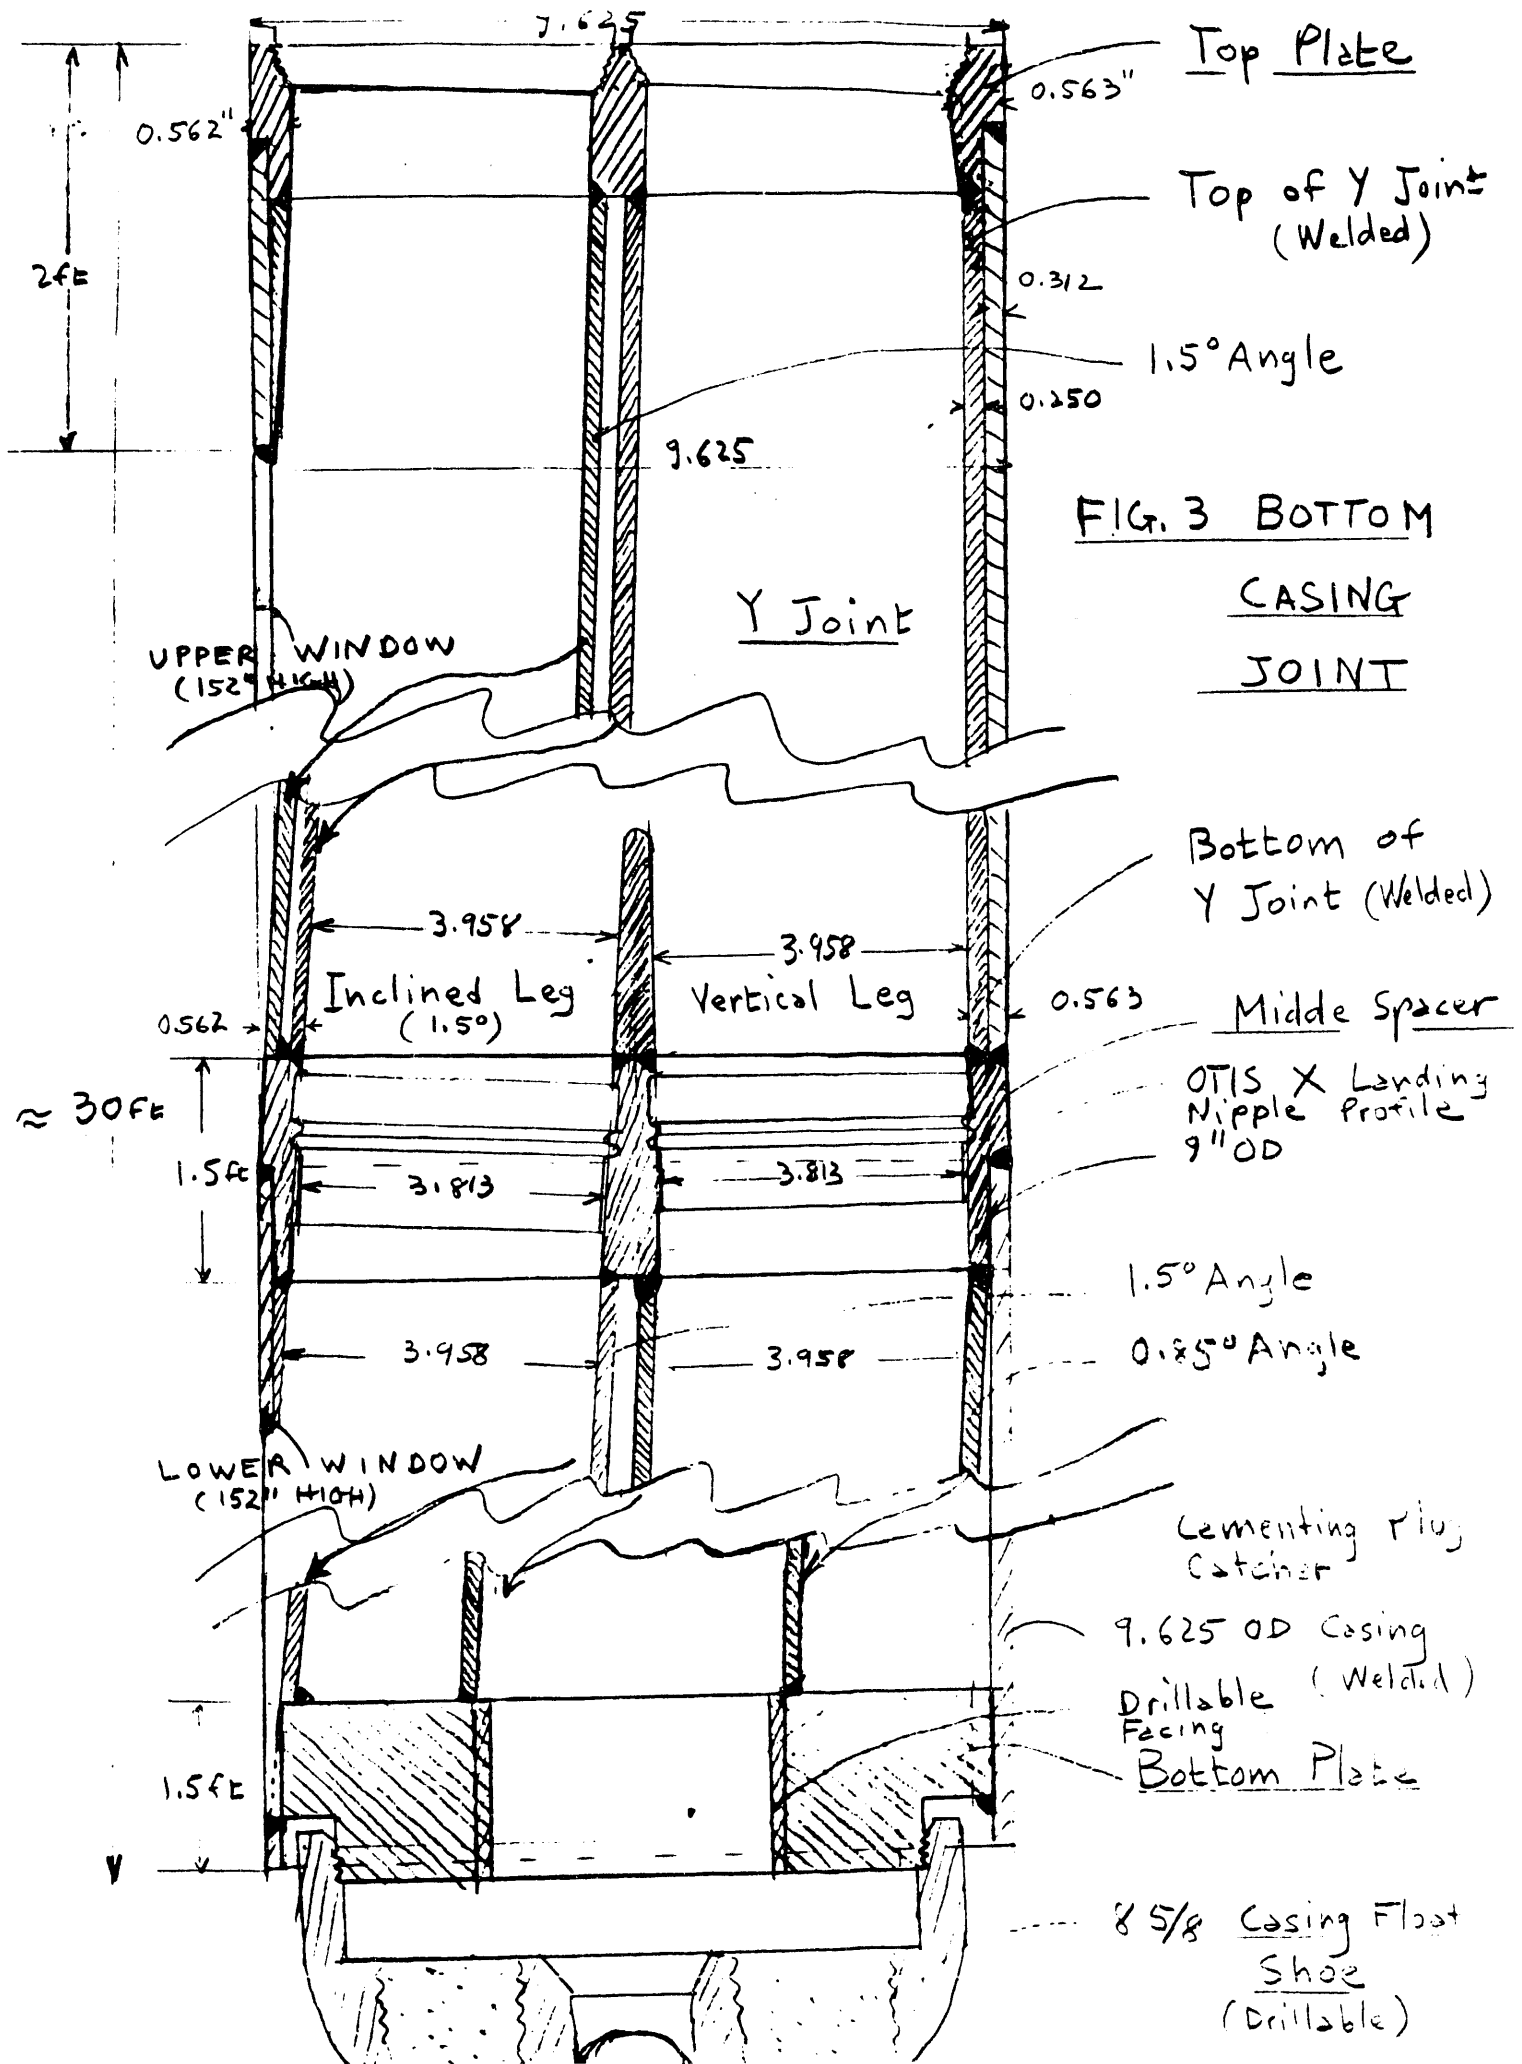 9.625
Top Plate
0.562"
0.563"
Top of Y Joint
(Welded)
2ft
0.312
1.5° Angle
0.250
9.625
FIG. 3 BOTTOM
CASING
JOINT
Y Joint
UPPER WINDOW
(152" HIGH)
Bottom of
Y Joint (Welded)
3.958
3.958
Inclined Leg
(1.5°)
Vertical Leg
0.562
0.563
Midde Spacer
≈ 30ft
OTIS X Landing
Nipple Profile
9" OD
1.5ft
3.813
3.813
1.5° Angle
3.958
3.958
0.85° Angle
LOWER WINDOW
(152" HIGH)
Cementing Plug
Catcher
9.625 OD Casing
(Welded)
Drillable
Facing
1.5ft
Bottom Plate
8 5/8 Casing Float
Shoe
(Drillable)